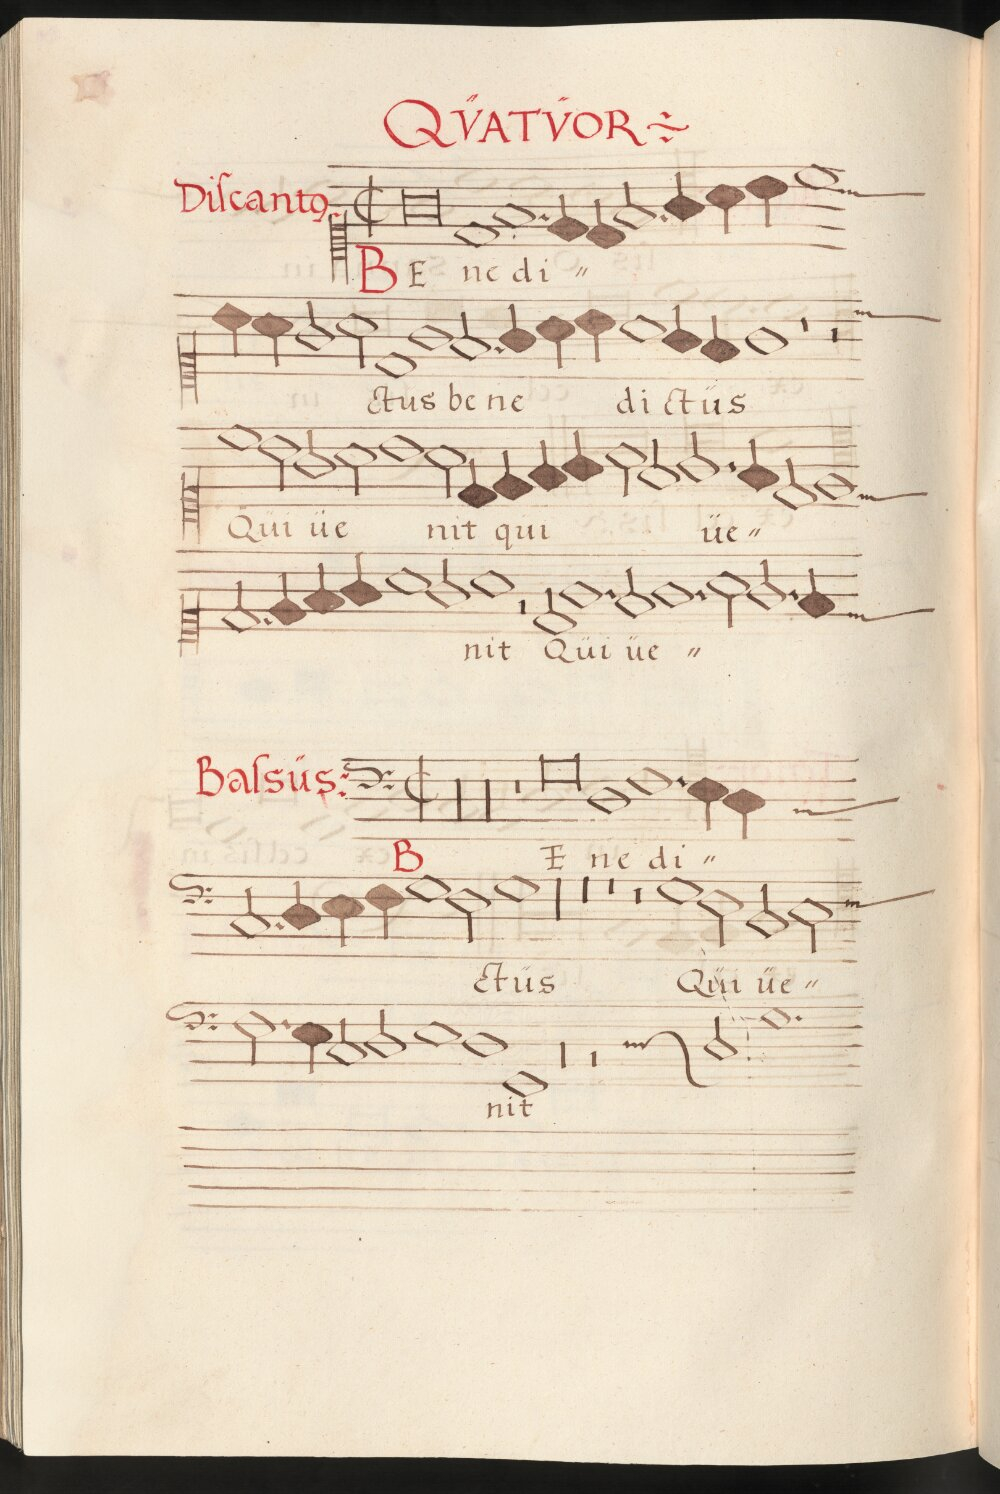 QV̈ATV̈OR
Diſcantꝯ.
BE ne di „
ctus be ne di ctüs
Qüi üe nit qui üe „
nit Qüi üe „
Baſsüs:
BE ne di „
ctüs Qüi üe „
nit